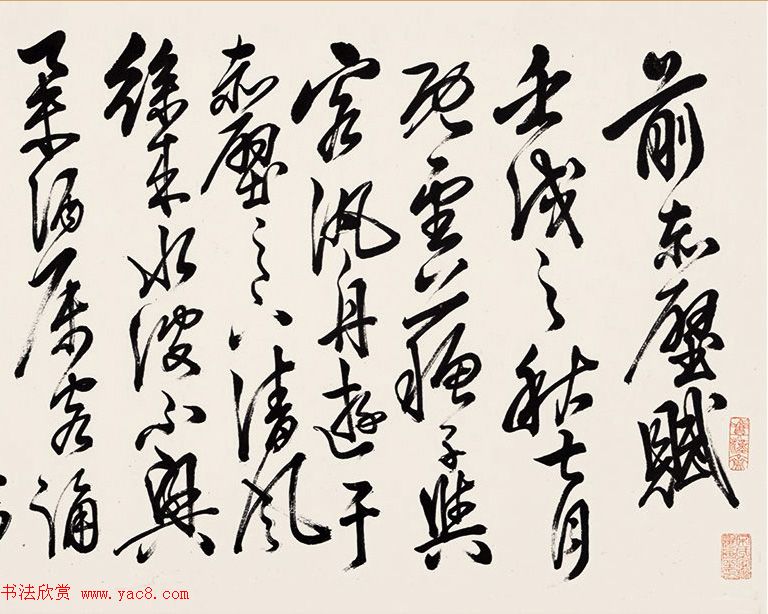 前赤壁賦
壬戌之秋七月
既望蘇子與
客汎舟遊于
赤壁之下清風
徐来水波不興
舉酒属客誦
书法欣赏 www.yac8.com